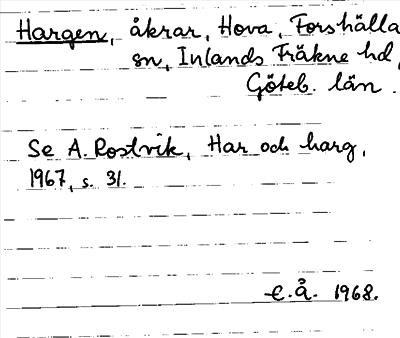 Hargen, åkrar, Hova, Forshälla
sn, Inlands Fräkne hd,
Göteb. län.
Se A. Rostvik, Har och harg,
1967, s. 31.
E.Å. 1968.